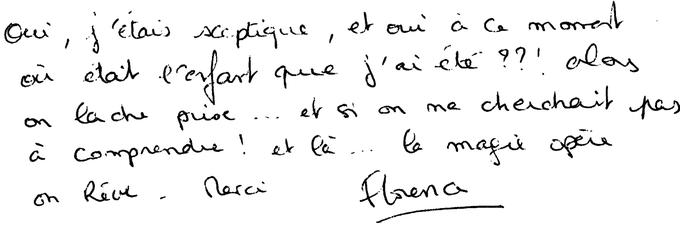 Oui, j'étais sceptique, et oui à ce moment
où était l'enfant que j'ai été ??! alors
on lache prise ... et si on ne cherchait pas
à comprendre ! et là ... la magie opère
on Rêve. Merci Florence